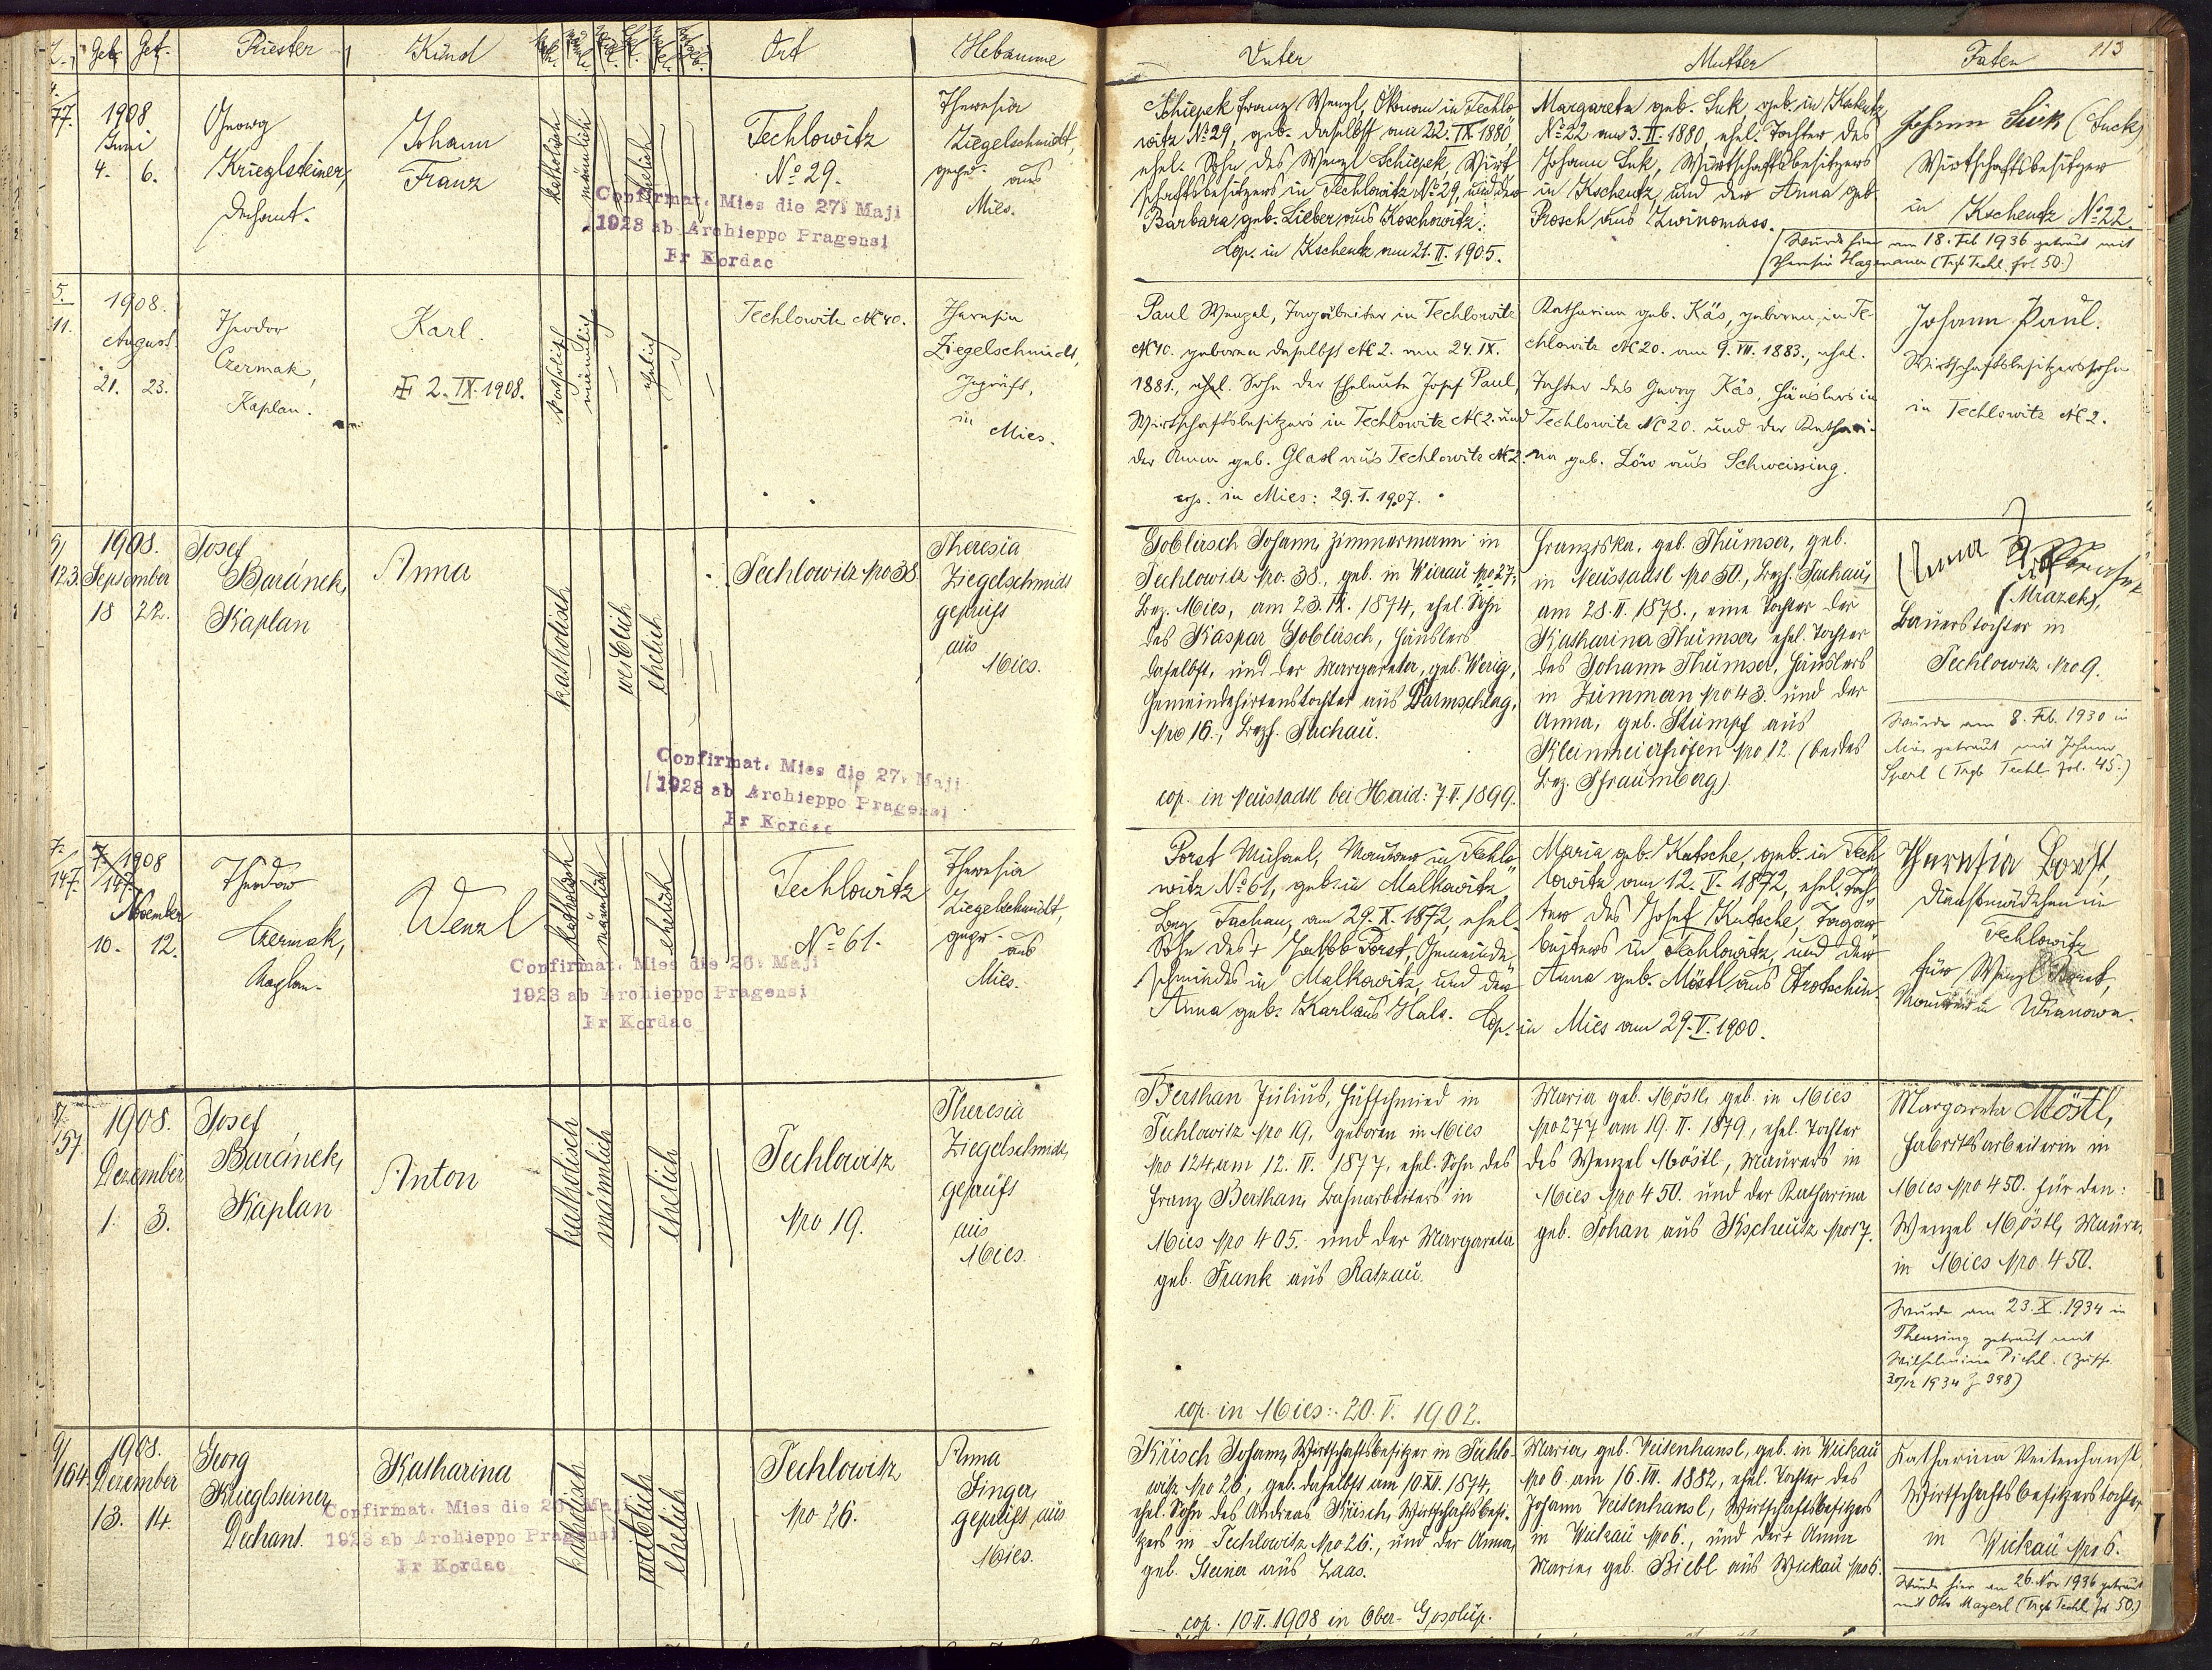 Z. Geb. Get. Priester Kind Ort Hebamme
Vater Mutter Paten 113
4.
77.
1908
Juni
4. 6.
Georg
Krieglsteiner,
Dechant.
Johann
Franz
katholisch
männlich
ehelich
Techlowitz
No 29.
Theresia
Ziegelschmidt,
gepr. aus
Mies.
Confirmat. Mies die 27. Maji
1923 ab Archieppo Pragensi
Fr Kordac
Schiepek Franz Wenzl, Ökonom in Techlo-
witz No 29, geb. daselbst am 22. IX. 1880,
ehel. Sohn des Wenzl Schiepek, Wirt-
schaftsbesitzers in Techlowitz No 29, und der
Barbara geb. Lieber aus Koschowitz.
Cop. in Kscheutz am 21. II. 1905.
Margareta geb. Suk, geb. in Kscheutz
No 22 am 3. II. 1880, ehel. Tochter des
Johann Suk, Wirtschaftsbesitzers
in Kscheutz, und der Anna geb.
Prosch aus Zwinomass.
Johann Suk (Suck)
Wirtschaftsbesitzer
in Kscheutz No 22.
Wurde hier am 18. Feb 1936 getraut mit
Theresia Hagenauer (Trgb Techl. fol. 50.)
5.
111.
1908.
August
21. 23.
Theodor
Czermak,
Kaplan.
Karl.
2. IX. 1908.
katholisch
männlich
ehelich
Techlowitz No 40.
Theresia
Ziegelschmidt,
geprüft,
in
Mies.
Paul Wenzel, Tagarbeiter in Techlowitz
No 40. geboren daselbst No 2. am 24. IX.
1881., ehel. Sohn der Eheleute Josef Paul,
Wirtschaftsbesitzers in Techlowitz No 2. und
der Anna geb. Glasl aus Techlowitz No 2.
cop. in Mies: 29. I. 1907.
Katharina geb. Käs, geboren in Te-
chlowitz No 20. am 9. VII. 1883., ehel.
Tochter des Georg Käs, Häuslers in
Techlowitz No 20. und der Kathari-
na geb. Löw aus Schweissing.
Johann Paul.
Wirtschaftsbesitzerssohn
in Techlowitz No 2.
6/
123.
1908.
September
18 22.
Josef
Baránek,
Kaplan
Anna
katholisch
weiblich
ehelich
Techlowitz No 38.
Theresia
Ziegelschmidt
geprüft
aus
Mies.
Confirmat. Mies die 27. Maji
1923 ab Archieppo Pragensi
Fr Kordac
Goblirsch Johann, Zimmermann in
Techlowitz No. 38., geb. in Wierau No 27.,
Bez. Mies, am 23. IX. 1874, ehel. Sohn
des Kaspar Goblirsch, Häuslers
daselbst, und der Margareta, geb. Werig,
Gemeindehirtenstochter aus Darmschlag,
No 16., Bezh. Tachau.
cop. in Neustadtl bei Haid: 7. V. 1899.
Franziska, geb. Thumser, geb.
in Neustadtl No 50., Bezh. Tachau,
am 28. II. 1878., eine Tochter der
Katharina Thumser, ehel. Tochter
des Johann Thumser, Häuslers
in Zummern No 43. und der
Anna, geb. Stumpf aus
Kleinmeierhöfen No 12. (beides
Bez. Pfraumberg)
Anna
(Mrazek),
Bauerstochter in
Techlowitz No 9.
Wurde am 8. Feb. 1930 in
Mies getraut mit Johann
Sperl (Trgb Techl fol. 45.)
7.
147.
7. 1908
147.
November
10. 12.
Theodor
Czermak,
Kaplan.
Wenzl
katholisch
männlich
ehelich
Techlowitz
No 61.
Theresia
Ziegelschmidt,
gepr. aus
Mies.
Confirmat. Mies die 26. Maji
1923 ab Archieppo Pragensi
Fr Kordac
Porst Michael, Maurer in Techlo-
witz No 61, geb. in Malkowitz,
Bez. Tachau, am 29. X. 1872, ehel.
Sohn des + Jakob Porst, Gemeinde-
schmiedes in Malkowitz, und der
Anna geb. Karl aus Hals. Cop. in Mies am 29. V. 1900.
Maria geb. Kutsche, geb. in Tech-
lowitz am 12. V. 1872, ehel. Toch-
ter des Josef Kutsche, Tagar-
beiters in Techlowitz, und der
Anna geb. Möstl aus Otrotschin.
Theresia Porst,
Dienstmädchen in
Techlowitz
für Wenzl Porst,
Maurer in Wranowa.
8/
157
1908.
Dezember
1. 3.
Josef
Baránek,
Kaplan
Anton
katholisch
männlich
ehelich
Techlowitz
No 19.
Theresia
Ziegelschmidt,
geprüft
aus
Mies.
Berthan Julius, Hufschmied in
Techlowitz No 19, geboren in Mies
No 124 am 12. IV. 1877, ehel. Sohn des
Franz Berthan, Bahnarbeiters in
Mies No 405. und der Margareta
geb. Frank aus Ratzau.
cop. in Mies: 20. V. 1902.
Maria geb. Möstl, geb. in Mies
No 277 am 19. II. 1879, ehel. Tochter
des Wenzel Möstl, Maurers in
Mies No 450. und der Katharina
geb. Johan aus Kscheutz No 17.
Margareta Möstl,
Fabriksarbeiterin in
Mies No 450. für den:
Wenzel Möstl, Maurer
in Mies No 450.
Wurde am 23. X. 1934 in
Theusing getraut mit
Wilhelmine Pichl. (Zusch.
30/12 1934 Z 398)
9/
164.
1908.
Dezember
13. 14.
Georg
Krieglsteiner
Dechant
Katharina
katholisch
weiblich
ehelich
Techlowitz
No 26.
Anna
Singer,
geprüft aus
Mies.
Confirmat. Mies die 26. Maji
1923 ab Archieppo Pragensi
Fr Kordac
Krisch Johann, Wirtschaftsbesitzer in Techlo-
witz No 26, geb. daselbst am 10. XII. 1874,
ehel. Sohn des Andreas Krisch, Wirtschaftsbesi-
tzers in Techlowitz No 26., und der Anna,
geb. Steiner aus Laas.
cop. 10. II. 1908 in Ober-Gosolup.
Maria, geb. Veitenhansl, geb. in Wickau
No 6. am 16. VII. 1882, ehel. Tochter des
Johann Veitenhansl, Wirtschaftsbesitzers
in Wickau No 6., und der + Anna
Maria, geb. Biebl aus Wickau No 6.
Katharina Veitenhansl,
Wirtschaftsbesitzerstochter
in Wickau No 6.
Wurde hier am 26. Nov 1936 getraut
mit Otto Mayerl (Trgb Techl. fol 50.)